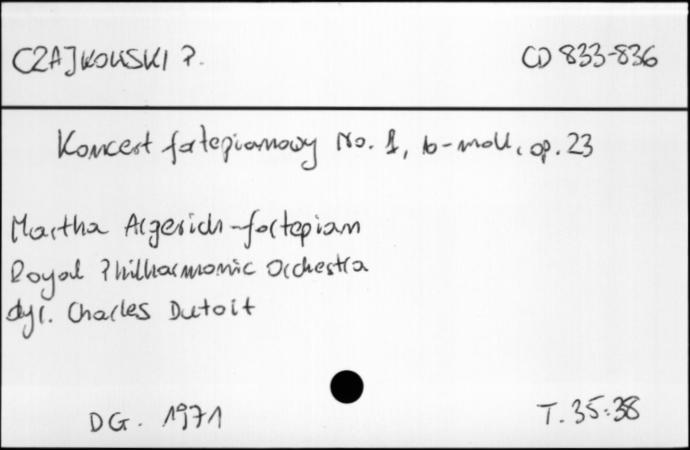 CZAJKOWSKI P.
CD 833-836
Koncert fotepianowy No. 1, b-moll, op. 23
Martha Argerich-fortepian
Royal Philharmonic Orchestra
dyr. Charles Dutoit
DG. 1971
T. 35:38